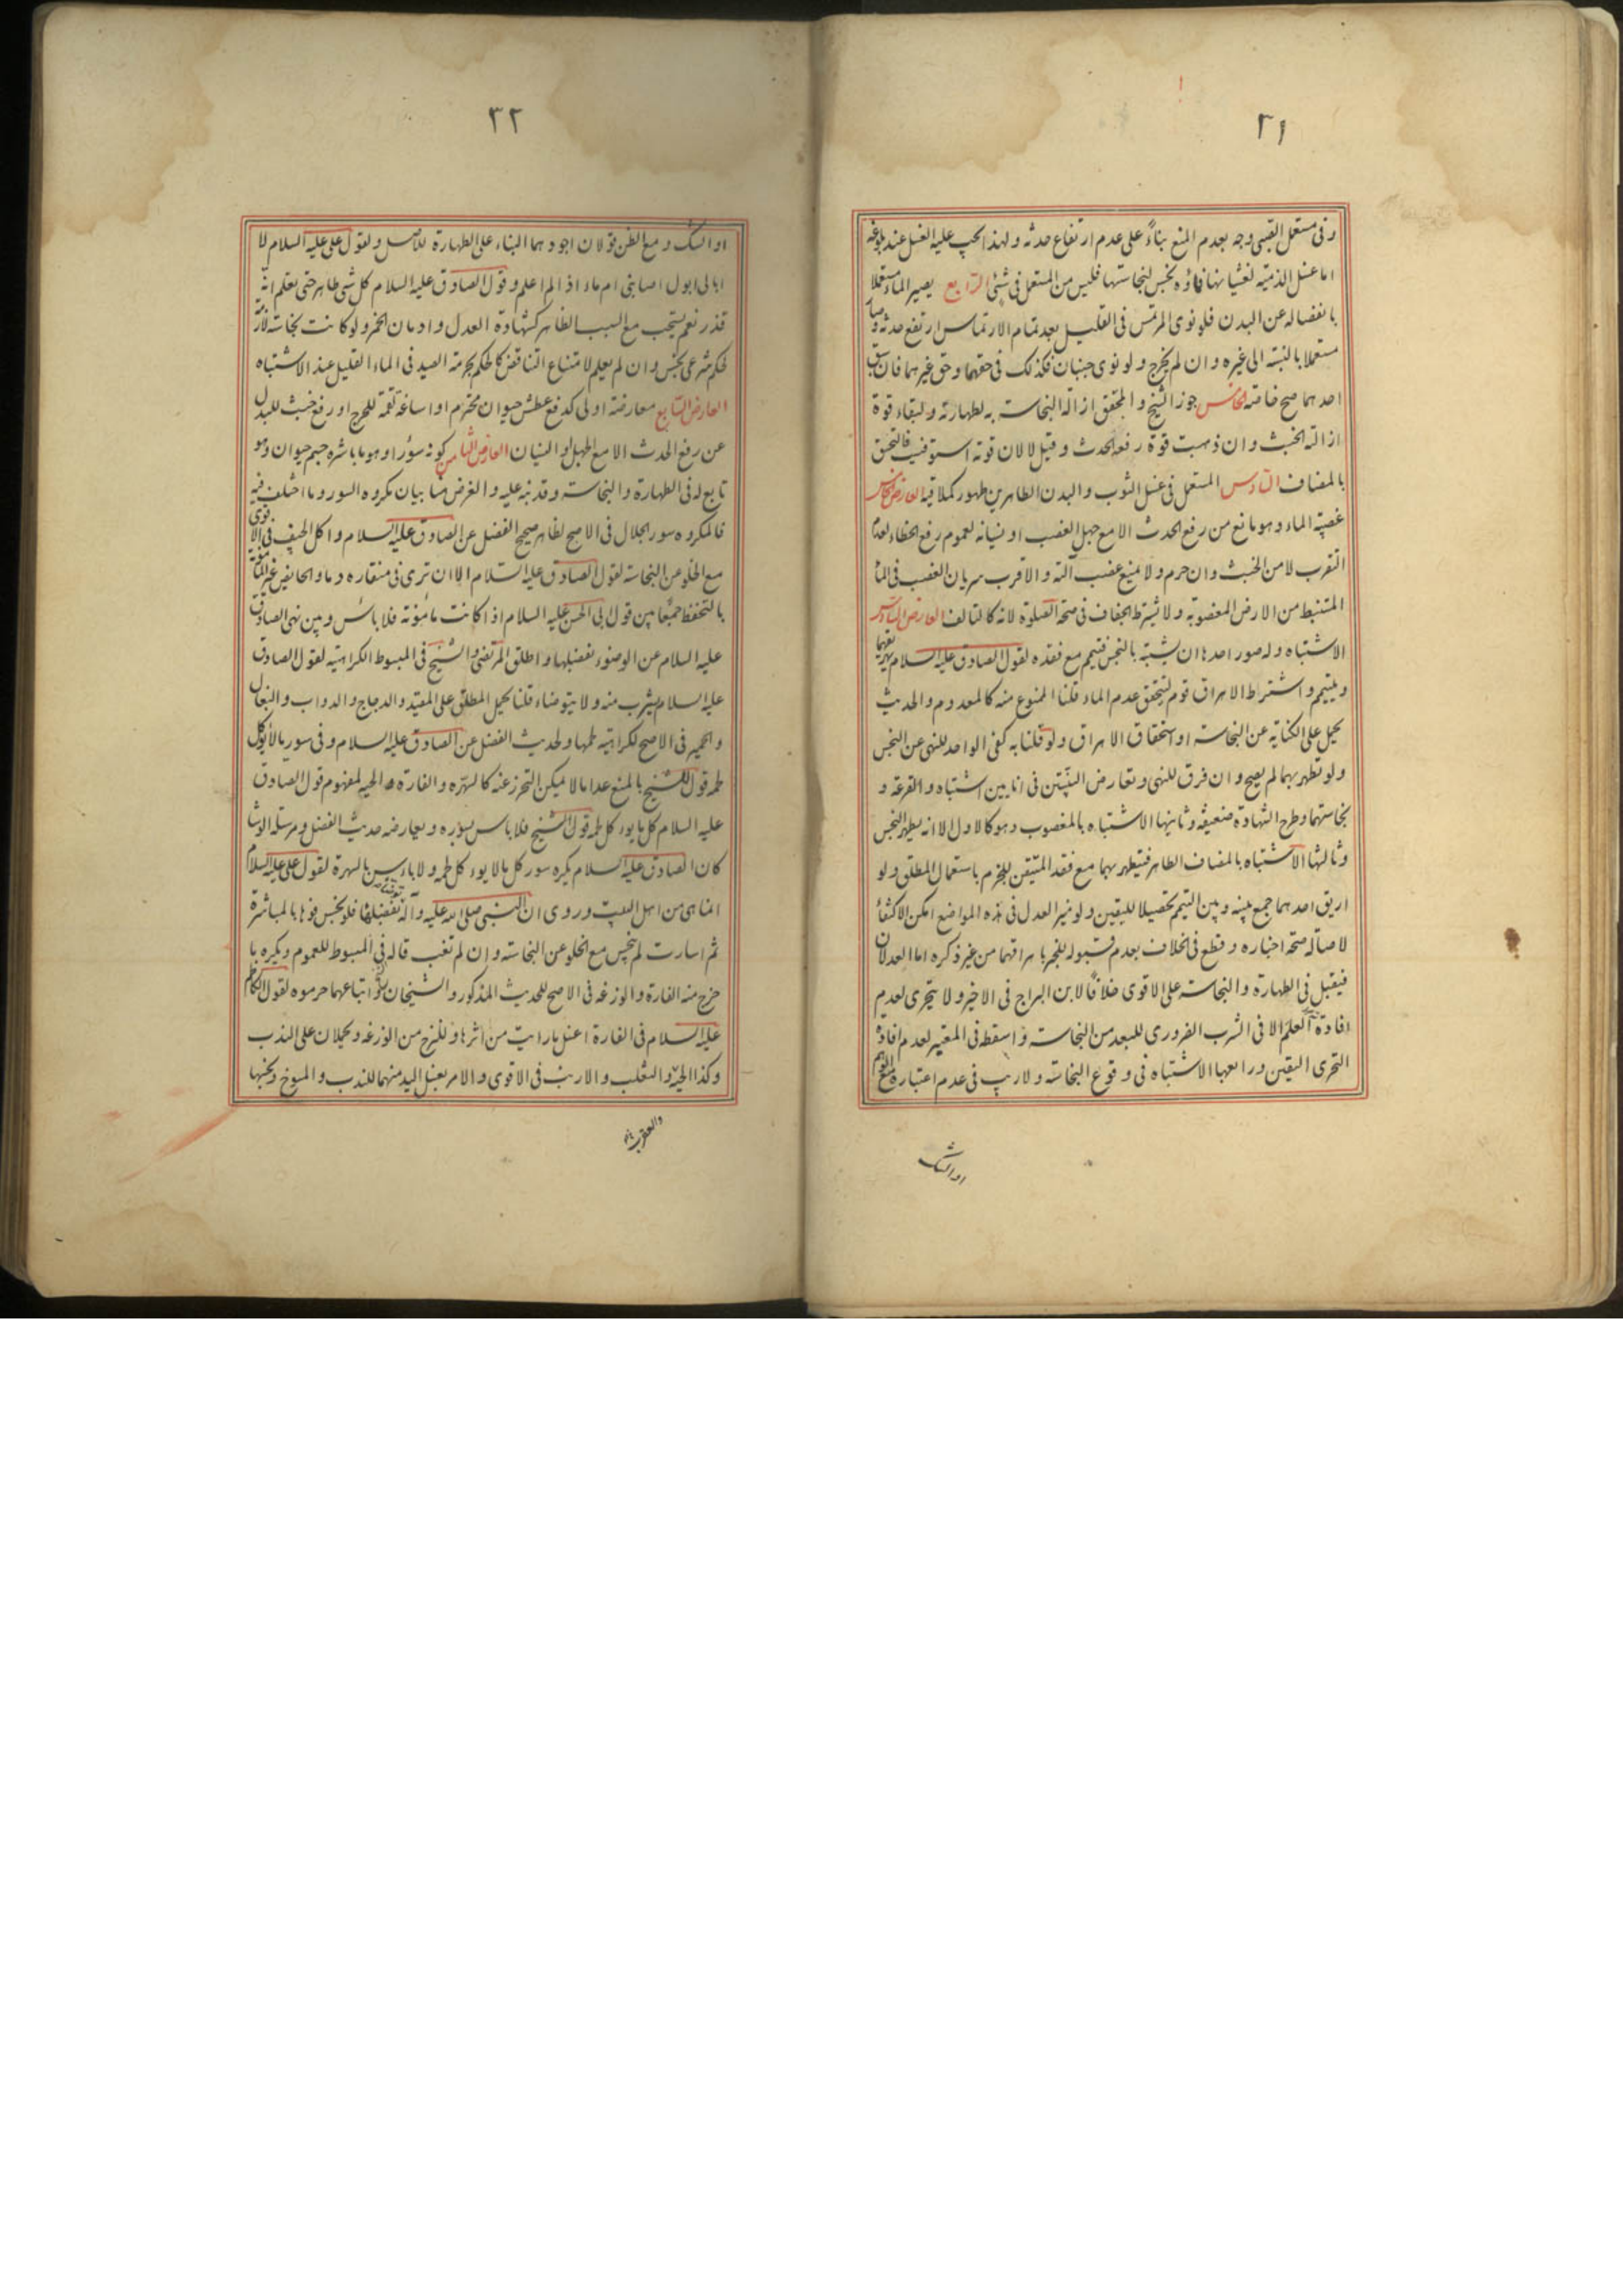 ٣١
وفى مستعمل الصبى وجه بعدم المنع بناءً على عدم ارتفاع حدثه ولهذا يجب عليه الغسل عند بلوغه
اما غسل الذمية لغشيانها فماؤه نجس لنجاستها فليس من المستعمل فى شئ الرابع يصير الماء مستعملا
بانفصاله عن البدن فلو نوى المرتمس فى القليل بعد تمام الارتماس ارتفع حدثه وصار
مستعملا بالنسبة الى غيره وان لم يخرج ولو نوى جنبان فكذلك فى حقهما وحق غيرهما فان سبق
احدهما صح خاصة الخامس جوز الشيخ والمحقق ازالة النجاسة به لطهارته ولبقاء قوة
ازالة الخبث وان ذهبت قوة رفعه الحدث وقيل لا لان قوته استوفيت فالتحق
بالمضاف السادس المستعمل فى غسل الثوب والبدن الطاهرين طهور كملاقيه العارض الخامس
غصبية الماء وهو مانع من رفع الحدث الا مع جهل الغصب او نسيانه لعموم رفع الخطاء لعدم
التقرب لا من الخبث وان حرم ولا يمنع غصب آلته والاقرب سريان الغصب فى الماء
المستنبط من الارض المغصوبة ولا يشترط الجفاف فى صحة الصلوة لانه كالتالف العارض السادس
الاشتباه وله صور احدها ان يشتبه بالنجس فيتيمم مع فقده لقول الصادق عليه السلام يهريقهما
ويتيمم واشتراط الاهراق قوم ليتحقق عدم الماء قلنا الممنوع منه كالمعدوم والحديث
يحمل على الكناية عن النجاسة او استحقاق الاهراق ولو قلنا به كفى الواحد للنهى عن النجس
ولو تطهر بهما لم يصح وان فرق للنهى وتعارض البينتين فى اناءين اشتباه والقرعة و
نجاستهما وطرح الشهادة ضعيفة وثانيها الاشتباه بالمغصوب وهو كالاول الا انه يطهر النجس
وثالثها الاشتباه بالمضاف الطاهر فيتطهر بهما مع فقد المتيقن للجزم باستعمال المطلق ولو
اريق احدهما جمع بينه وبين التيمم تحصيلا لليقين ولو ميز العدل فى هذه المواضع امكن الاكتفاء
لاصالة صحة اخباره وقطع فى الخلاف بعدم قبوله للخبر باهراقهما من غير ذكره اما العدلان
فيقبل فى الطهارة والنجاسة على الاقوى خلافًا لابن البراج فى الاخير ولا يتحرى لعدم
افادة العلم الا فى الشرب الضرورى للبعد من النجاسة واسقطه فى المعتبر لعدم افادة
التحرى اليقين ورابعها الاشتباه فى وقوع النجاسة ولا ريب فى عدم اعتباره مع الوهم
او الشك
٣٢
او الشك ومع الظن قولان اجودهما البناء على الطهارة للاصل ولقول على عليه السلام لا
ابالى ابول اصابنى ام ماء اذا لم اعلم وقول الصادق عليه السلام كل شى طاهر حتى تعلم انه
قذر نعم يستحب مع السبب الظاهر كشهادة العدل وادمان الخمر ولو كانت نجاسته
حكم شرعى نجس وان لم يعلم لامتناع التناقض كالحكم بحرمة الصيد فى الماء القليل عند الاشتباه
العارض السابع معارضته اولى كدفع عطش حيوان محترم او اساغة لقمة للحرج او رفع خبث للبدل
عن رفع الحدث الا مع الجهل او النسيان العارض الثامن كونه سؤرا وهو ما باشره جسم حيوان وهو
تابع له فى الطهارة والنجاسة وقد نبه عليه والغرض هنا بيان مكروه السور وما اختلف فيه
فالمكروه سور الجلال فى الاصح لظاهر صحيح الفضل عن الصادق عليه السلام واكل الجيف فى الاقوى
مع الخلو عن النجاسة لقول الصادق عليه السلام الا ان ترى فى منقاره دما والحايض غير المأمونة
بالتحفظ جمعًا بين قول ابى الحسن عليه السلام اذا كانت مأمونة فلا بأس وبين نهى الصادق
عليه السلام عن الوضوء بفضلها واطلق المرتضى والشيخ فى المبسوط الكراهية لقول الصادق
عليه السلام يشرب منه ولا يتوضاء قلنا يحمل المطلق على المقيد والدجاج والدواب والبغال
والحمير فى الاصح لكراهية لحمها ولحديث الفضل عن الصادق عليه السلام وفى سور ما لا يؤكل
لحمه قول للشيخ بالمنع عدا ما لا يمكن التحرز عنه كالهرة والفارة والحية لمفهوم قول الصادق
عليه السلام كل ما يوكل لحمه قول الشيخ فلا باس بسؤره ويعارضه حديث الفضل ومرسلة الوشا
كان الصادق عليه السلام يكره سور كل ما لا يوكل لحمه ولا باس بالهرة لقول على عليه السلام
انما هى من اهل البيت وروى ان النبى صلى الله عليه وآله توضأ بفضلها فلو نجس فوها بالمباشرة
ثم اسارت لم ينجس مع الخلو عن النجاسة وان لم تغب قاله فى المبسوط للعموم ويكره ما
خرج منه الفارة والوزغة فى الاصح للحديث المذكور والشيخان واتباعهما حرموه لقول الكاظم
عليه السلام فى الفارة اغسل ما رايت من اثرها وللنزح من الوزغة ويحملان على الندب
وكذا الحية والثعلب والارنب فى الاقوى والامر بغسل اليد منهما للندب والمسوخ ومنها
والعقرب